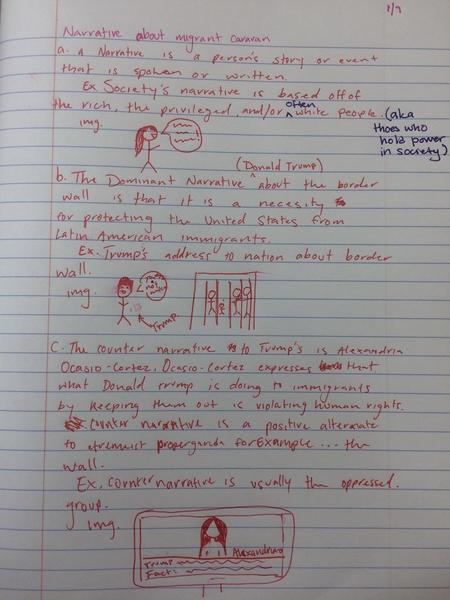 1/9
Narrative about migrant caravan
a. A Narrative is a person's story or event
that is spoken or written.
Ex Society's narrative is based off of
the rich, the privileged, and/or often white people. (aka
thoes who
hold power
in society)
img.
(Donald Trump)
b. The Dominant Narrative about the border
wall is that it is a necesity
for protecting the United States from
Latin American immigrants.
Ex. Trump's address to nation about border
wall.
img.
Trump
C. The counter narrative to Trump's is Alexandria
Ocasio-Cortez. Ocasio-Cortez expresses that
what Donald trump is doing to immigrants
by keeping them out is violating human rights.
counter narrative is a positive alternate
to etremeist properganda for Example... the
wall.
Ex. counter narrative is usually the oppressed.
group.
img.
Alexandria
Trump
Fact: